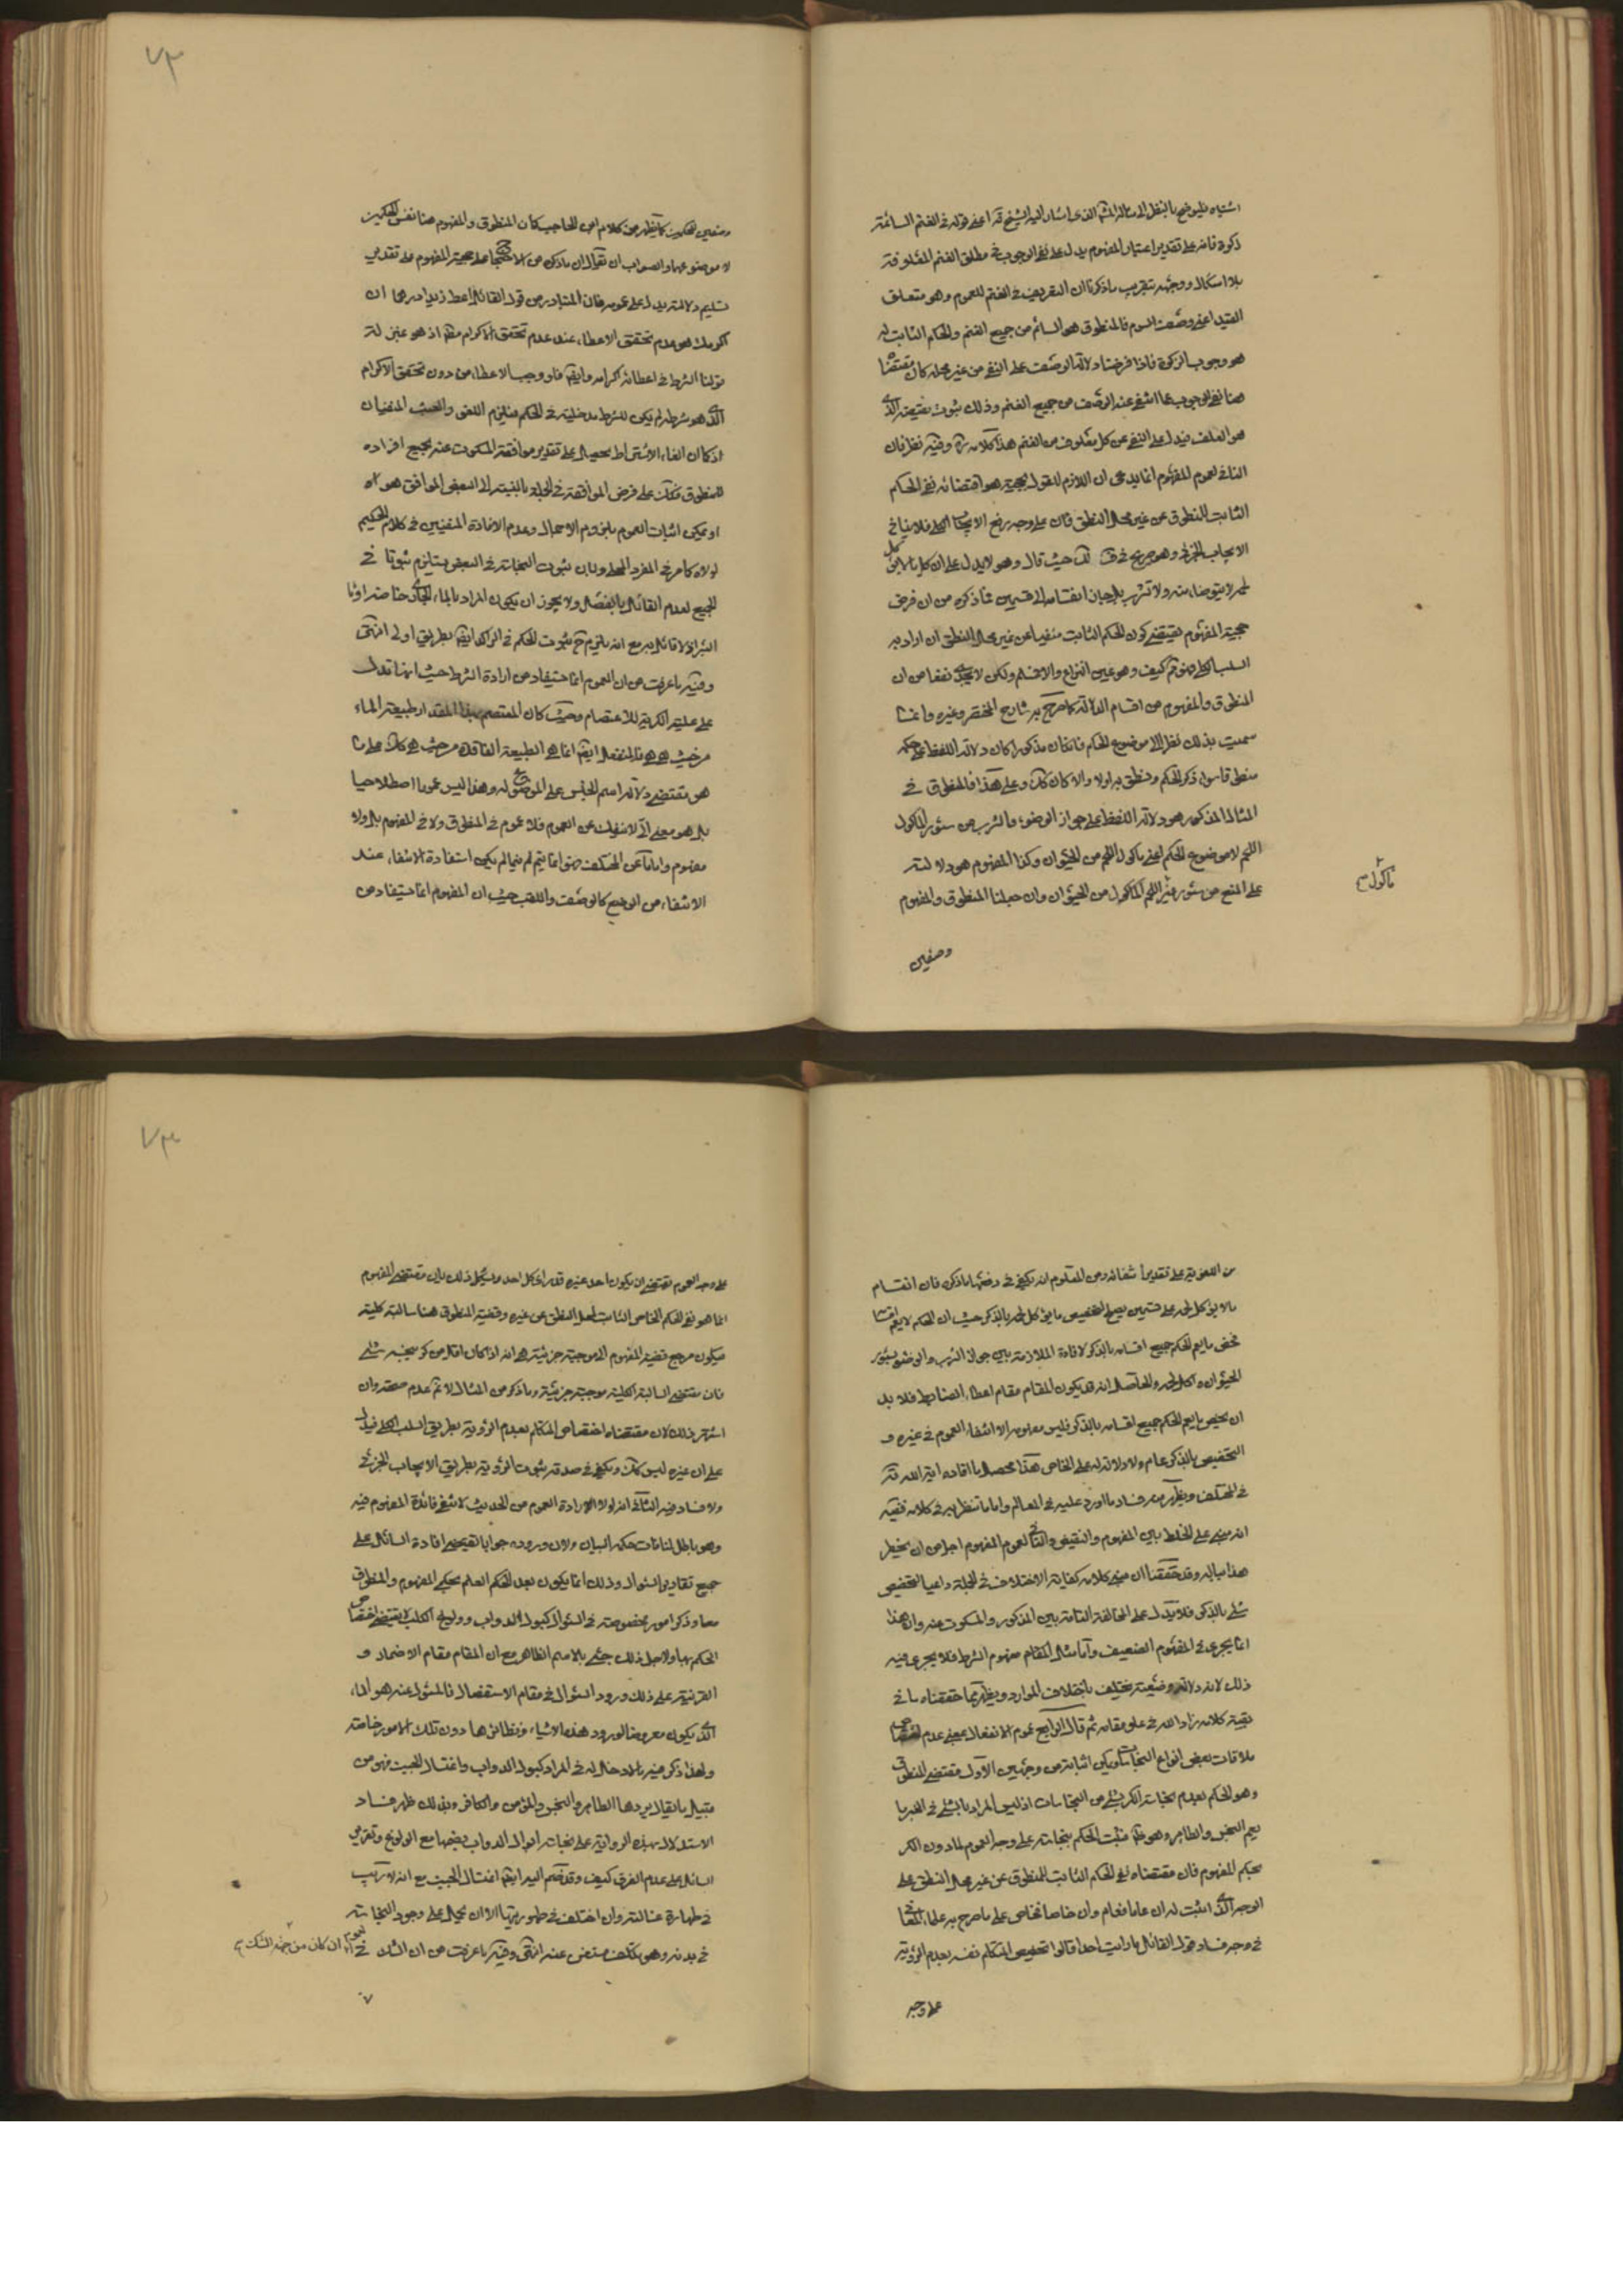 اشتباه فليوضح بالنظر الى مسالة اشار اليه الشيخ قه اعنى قوله فى الغنم السائمة
زكوة فانه على تقدير اعتبار المفهوم يدل على نفى الوجوب فى مطلق الغنم المعلوفة
بلا اشكال ووجهه بتقريب ما ذكرنا ان التعريف فى الغنم للعموم وهو متعلق
القيد اعنى وصف السوم فالمنطوق هو السائم من جميع الغنم والحكم الثابت له
هو وجوب الزكوة فاذا فرضنا دلالة الوصف على النفى من غير محله كان مقتضاه
هنا نفى الوجوب عما انتفى عنه الوصف من جميع الغنم وذلك بثبوت نقيضه الذى
هو العلف فيدل على النفى عن كل معلوف من الغنم هذا كلامه ره وفيه نظر فان
النافى لعموم المفهوم انما يدعى ان اللازم للقول بحجيته هو اقتضائه نفى الحكم
الثابت للمنطوق عن غير محل النطق فان على وجه رفع الايجاب الكلى فلا ينافى
الايجاب الجزئى وهو صريح فى حيث قال وهو لا يدل على ان كل ما لا يؤكل
لحمه لا يتوضا منه ولا تشرب بل جاز انقسامه الى قسمين فما ذكره من ان فرض
حجية المفهوم يقتضى كون الحكم الثابت منفيا عن غير محل النطق ان اراد به
السلب الكلى فهو ثم كيف وهو عين النزاع والا فمسلم ولكن لا يجدى نفعا من ان
المنطوق والمفهوم من اقسام الدلالة كما صرح به شارح المختصر وغيره وانما
سميت بذلك نظرا الى موضوع الحكم فانه ان كان مذكورا كان دلالة اللفظ على حكمه
منطوقا سواء ذكر الحكم ونطق به اولا والا كان كان وعلى هذا فالمنطوق فى
المثال المذكور هو دلالة اللفظ على جواز الوضوء والشرب من سئور الماكول
اللحم لا موضوع الحكم اعنى ماكول اللحم من الحيوان وكذا المفهوم هو دلالته
على المنع من سئور غير اللحم الماكول من الحيوان وان جعلنا المنطوق والمفهوم
ماكول
وصفين
وصفين للحكمين كما يظهر من كلام ابن الحاجب كان المنطوق والمفهوم هنا نفس الحكمين
لا موضوعهما والصواب ان يقال ان ما ذكر من الاحتجاج على حجية المفهوم على تقدير
تسليم دلالته يدل على عمومه فان المتبادر من قول القائل اعط زيدا درهما ان
اكرمك هو عدم تحقق الاعطاء عند عدم تحقق الاكرام مطلقا اذ هو بمنزلة
قولنا الشرط فى اعطائه اكرامه وايضا فلو وجب الاعطاء من دون تحقق الاكرام
الذى هو شرطه لم يكن للشرط مدخلية فى الحكم فيلزم اللغو والعبث المنفيان
اذ كما ان الغاء الاشتراط يحصل على تقدير موافقة المسكوت عنه بجميع افراده
للمنطوق فكك على فرض الموافقة فى الجملة بالنسبة الى البعض الموافق هو اه
او يمكن اثبات العموم بلزوم الاجمال وعدم الافادة المنفيين فى كلام الحكيم
لولاه كما مر فى المفرد المحلى وبان ثبوت النجاسة فى البعض يستلزم ثبوتا فى
الجميع لعدم القائل بالفصل ولا يجوز ان يكون المراد بالماء الجارى خاصة او ماء
البئر اذ لا قائل به مع انه يلزم ح ثبوت الحكم فى الراكد ايضا بطريق اولى انتهى
وفيه ما عرفت من ان العموم انما يستفاد من اداة الشرط حيث انها تدل
على علية الكرية للاعتصام وحيث كان المعتصم بهذا المقدار طبيعة الماء
من حيث هى هى فالمنفعل ايضا انما هو الطبيعة الفاقدة من حيث هى كك على ما
هو مقتضى دلالة اسم الجنس على الموضوع له وهذا ليس عموما اصطلاحيا
بل هو معنى اخر لا ينفك عن العموم فلا عموم فى المنطوق ولا فى المفهوم بل ولا
مفهوم واما ما عن المختلف فهو انما يتم لم فيما لم يكن استفادة الانتفاء عند
الانتفاء من الوضع كالوصف واللقب حيث ان المفهوم انما يستفاد من
من اللغوية على تقدير انتفائه ومن المعلوم انه يكفى فى دفعها ما ذكر فان انقسام
ما لا يؤكل لحمه على قسمين يصح لتخصيص ما يؤكل لحمه بالذكر حيث ان الحكم لا يعم اقسامه
فخص ما يعم الحكم جميع اقسامه بالذكر لافادة الملازمة بين جواز الشرب والوضوء بسئور
الحيوان واكل لحمه والحاصل انه قد يكون المقام مقام اعطاء الضابط فلا بد
ان يخص ما يعم الحكم جميع اقسامه بالذكر فليس مفهومه الا انتفاء العموم فى غيره و
التخصيص بالذكر عام ولا دلالة له على الخاص هذا محصل ما افاده اية الله قه
فى المختلف ويظهر منه فساد ما اورد عليه فى المعالم واما ما تنظر به فى كلامه ففيه
انه مبنى على الخلط بين المفهوم والنقيض والنافى لعموم المفهوم اجل من ان يخطر
هذا بباله وقد حققنا ان مبنى كلامه كفاية الاختلاف فى الجملة داعيا لتخصيص
شئ بالذكر فلا يدل على المخالفة التامة بين المذكور والمسكوت عنه وان هذا
انما يجرى فى المفهوم الضعيف واما مثل المقام مفهوم الشرط فلا يجرى فيه
ذلك لانه دلالة وضعية تختلف باختلاف الموارد ويظهر مما حققناه ما فى
بقية كلامه زاد الله فى علو مقامه ثم قال الرابع عموم الانفعال بمعنى عدم اختصاصه
بملاقات بعض انواع النجاسات ويمكن اثباته من وجهين الاول مقتضى المنطوق
وهو الحكم بعدم نجاسة الكر بشئ من النجاسات اذ ليس المراد بالشئ فى الخبر ما
يعم النجس والطاهر وهو ظ فيثبت الحكم بنجاسته على وجه العموم لما دون الكر
بحكم المفهوم فان مقتضاه نفى الحكم الثابت للمنطوق عن غير محل النطق على
الوجه الذى اثبت له ان عاما فعام وان خاصا فخاص على ما صرح به علماء المعانى
فى وجه فساد قول القائل ما رايت احدا قالوا تخصيص المتكلم نفسه بعدم الرؤية
على وجه
على وجه العموم يقتضى ان يكون احد غيره قد راى كل احد ويشكل ذلك بان مقتضى المفهوم
انما هو نفى الحكم الخاص الثابت لمحل النطق عن غيره وقضية المنطوق هنا سالبة كلية
فيكون مرجع قضية المفهوم الى موجبة جزئية هى انه اذا كان اقل من كر ينجسه شئ
فان مقتضى السالبة الكلية موجبة جزئية وما ذكر من المثال لا نم عدم صحته وان
اشتهر ذلك لان مقتضاه اختصاص المتكلم بعدم الرؤية بطريق السلب الكلى فيدل
على ان غيره ليس كك ويكفى فى صدقه ثبوت الرؤية بطريق الايجاب الجزئى
ولا فساد فيه الثانى انه لولا ارادة العموم من الحديث لانتفى فائدة المفهوم فيه
وهو باطل لمنافات حكمة البيان ولان وروده جوابا يقتضى افادة السائل على
جميع تقادير السئوال وذلك انما يكون بعد الحكم العام بحكمى المفهوم والمنطوق
معا وذكر امور مخصوصة فى السئوال كبول الدواب وولوغ الكلب لا يقتضى اختصاص
الحكم بها ولاجل ذلك جئ بالاسم الظاهر مع ان المقام مقام الاضمار و
القرينة على ذلك ورود السئوال فى مقام الاستفصال فالمسئول عنه هو الماء
الذى يكون معروضا لورود هذه الاشياء ونظائرها دون تلك الامور خاصة
ولهذا ذكر فيه ما لا دخل له فى المراد كبول الدواب واغتسال الجنب فهو من
قبيل ما يقال يردها الطاهر والنجس والمؤمن والكافر وبذلك ظهر فساد
الاستدلال بهذه الرواية على نجاسة ابوال الدواب بضمها مع الولوغ وتقرير
السائل على عدم الفرق كيف وقد ضم اليه ايضا اغتسال الجنب مع انه لا ريب
فى طهارة غسالته وان اختلف فى طهوريتها الا ان يحمل على وجود النجاسة
فى بدنه وهو تكلف مستغنى عنه انتهى وفيه ما عرفت من ان الشك فى
العموم ان كان من جهة الشك